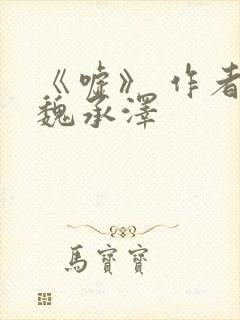 《嘘》 作者
魏承澤
馬寶寶